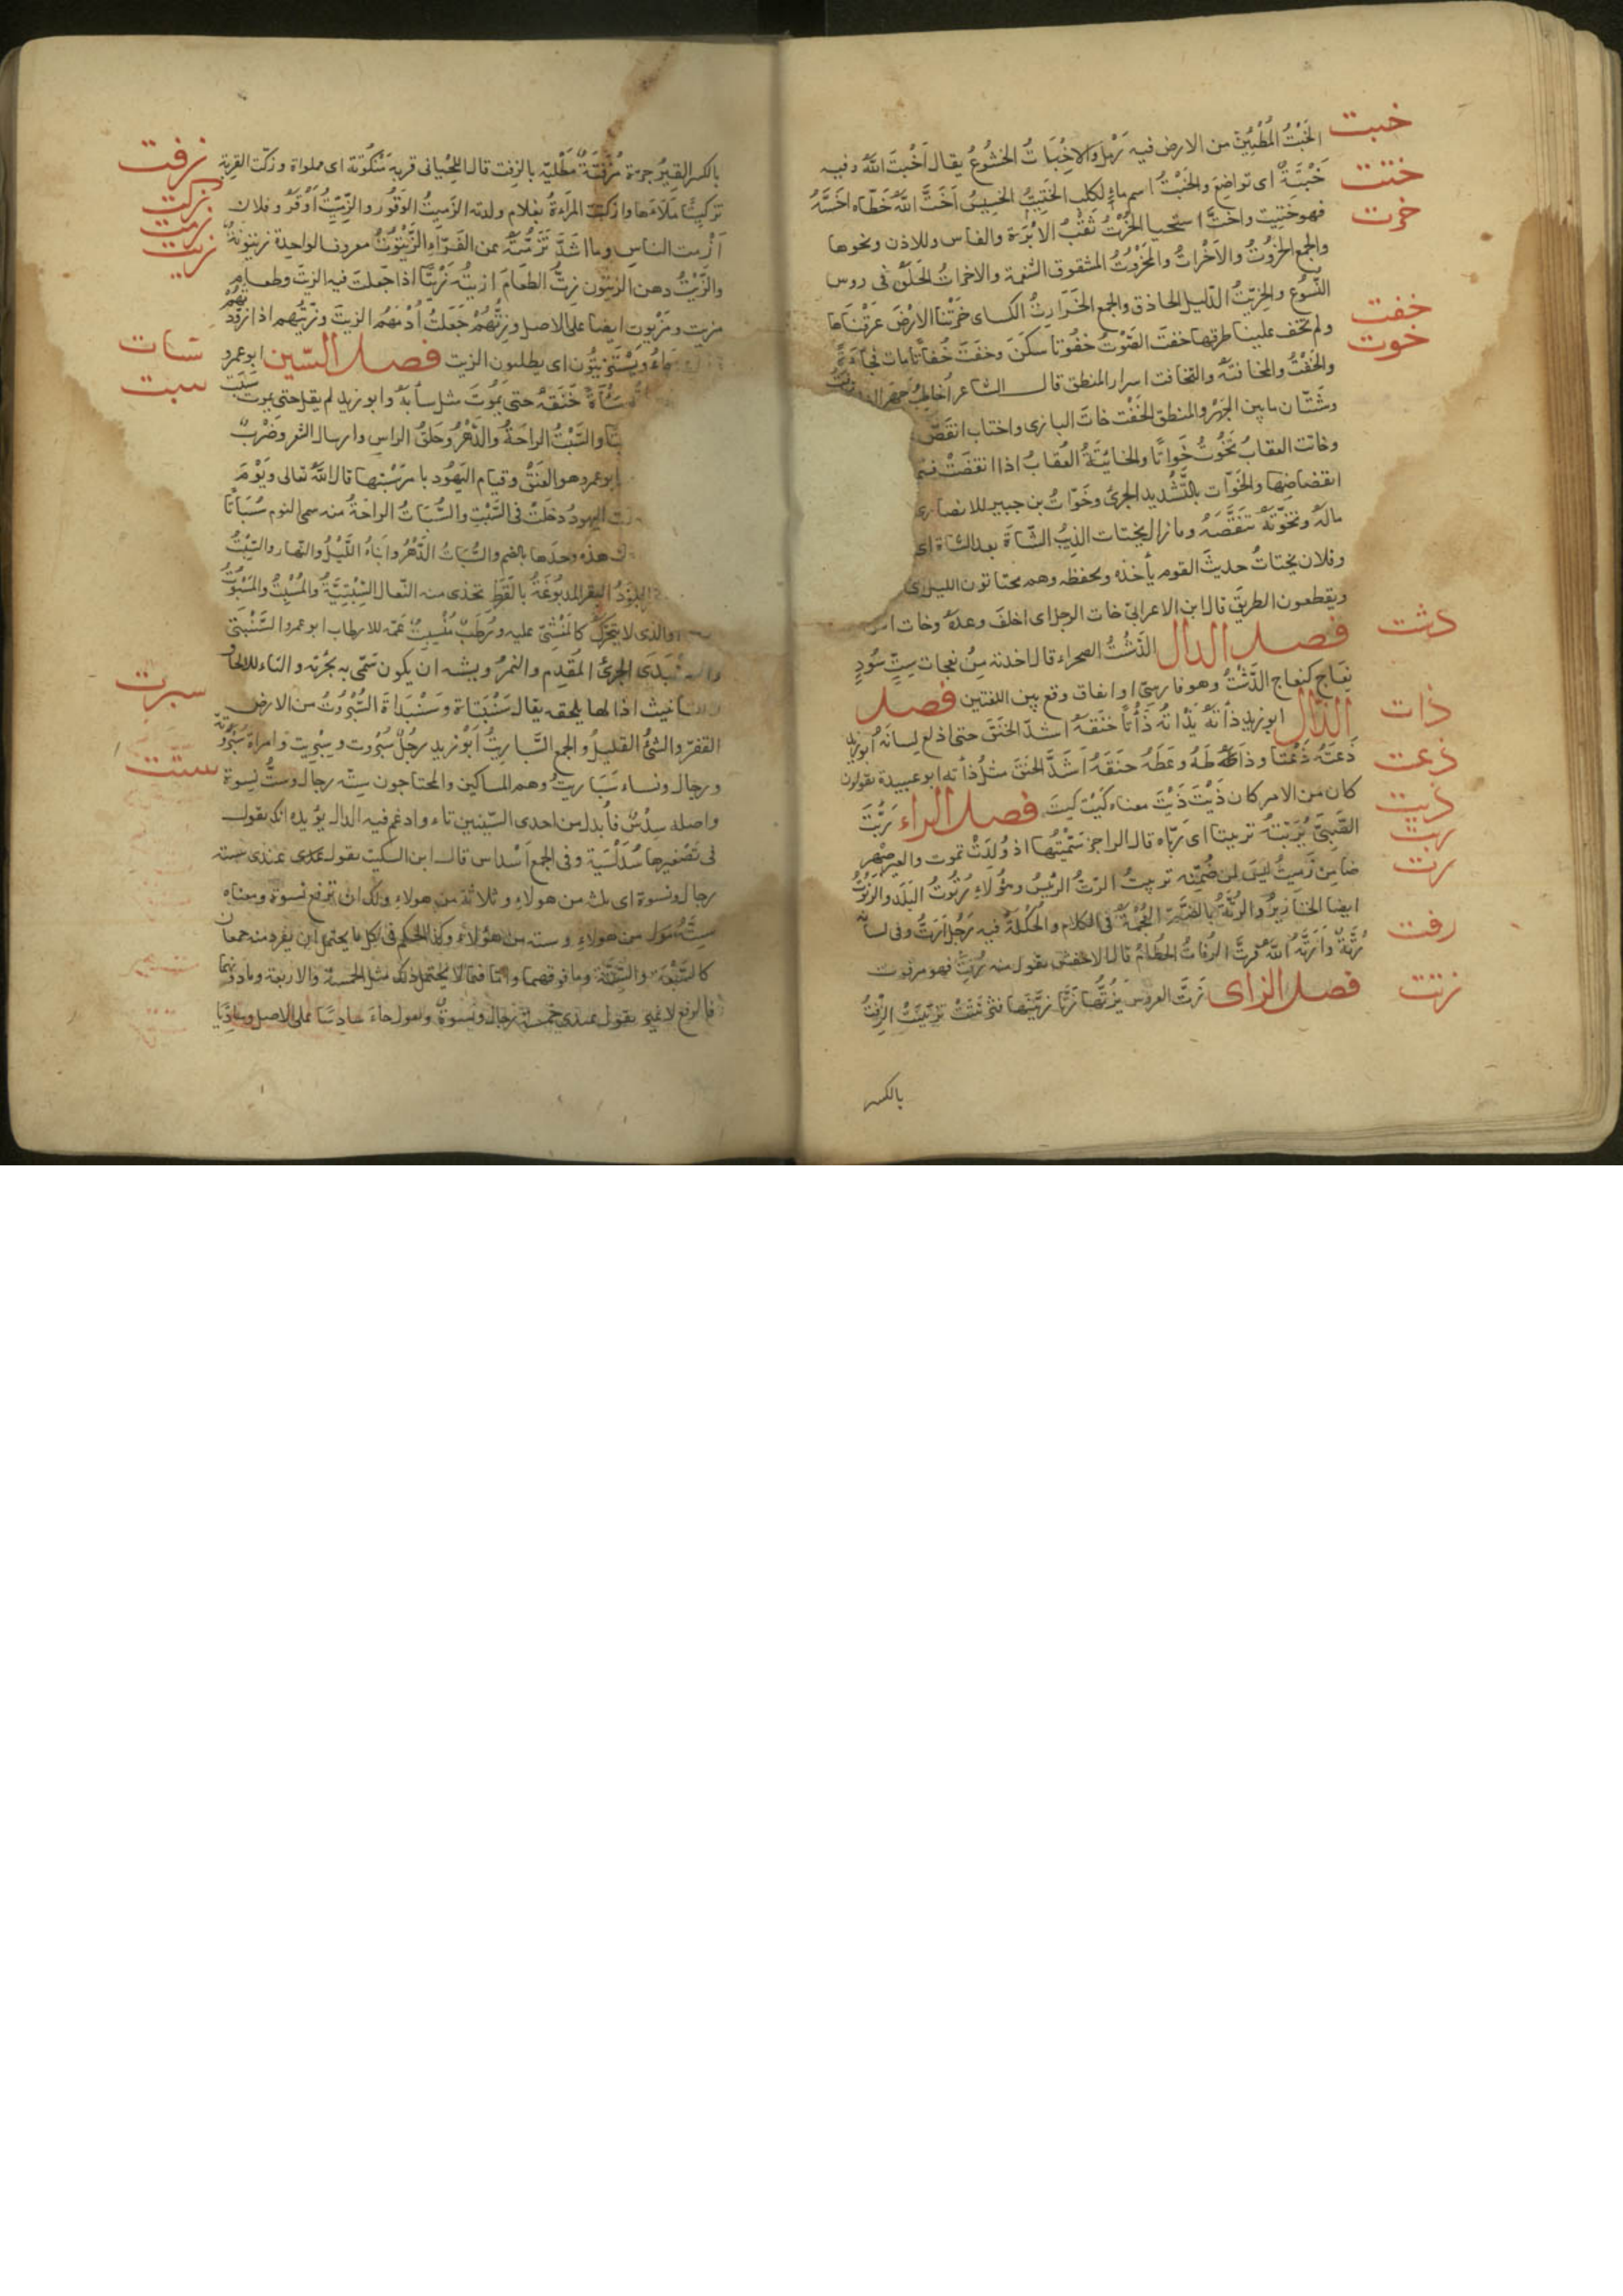 خبت
الخَبْتُ المُطْمَئِنّ من الارض فيه رَمْل والاِخْبَاتُ الخشُوعُ يقال اَخْبَتَ اللّٰه وفيه
ختت
خَبْتَةٌ اى تواضع والخَبْتُ اسم ماءٍ لكلب الخَتِيْتُ الخَسِيْسُ اَخَتَّ اللّٰهُ حَظّه اَخَسَّهُ
خرت
فهو خَتِيت واَخَتَّ استحيا الخُرْتُ ثَقْبُ الاِبْرَة والفاس والاذن ونحوها
والجمع الخُرُوتُ والاَخْراتُ والمَخْرُوتُ المشقوق الشفة والاخراتُ الحَلَقُ فى روس
النُّسُوع والخِرِّيْتُ الدّليل الحاذق والجمع الخَرَارِتُ الكساى خَرَتْنَا الاَرْضَ عَرَفْنَاها
خفت
ولم تخف علينا طرقها خفَتَ الصَّوْتُ خفُوتا سكَنَ وخفَتَ خُفَاتًا مات فجاءةً
خوت
والخَفْتُ والمخافتة والتخافت اسرار المنطق قال الشاعر اُخاطِبُ جَهْرًا
وشَتّان ما بين الجَهْرِ والمنطق الخَفْت خاتَ البازى واختات انقضّ
وخاتت العقابُ تَخُوتُ خَوَاتًا والخايتَةُ العُقابُ اذا انقضّتْ
انقضاضِها والخَوّات بالتَّشْديد الجرئُ وخَوّاتُ بن جبير الانصارى
مالَهُ وتخوّتَهُ تنَقَّصَهُ وما زال يختات الذِيبُ الشّاةَ بعد الشاة اى
وفلان يختاتُ حديثَ القوم يأخذه ويحفظه وهم يختاتون الليل اى
ويقطعون الطريقَ قال ابن الاعرابىّ خات الرجل اى اخلَفَ وعدَهُ وخات
دشت
فصل الدال الدَّشْتُ الصحراء قال اخذته مِن نعجات سِتٍّ سُودٍ
نعاج كنعاج الدَّشْتُ وهو فارسىّ او اتفاق وقع بين اللغتين فصل
ذات
الذال ابو زيد ذأتَهُ يَذْأتُهُ ذَأْتًا خنَقَهُ اشدّ الخنَق حتى اذلع لِسانَهُ ابوزيد
ذعت
ذَعَتَهُ ذَعْتًا وذأَطَهُ وعَطَهُ خنَقَهُ اَشَدَّ الخنَق مثل ذأته ابو عبيدة يقولون
ذيت
كان من الامر كان ذَيْتَ ذَيْتَ معناه كَيْتَ كيتَ فصل الراء رَبَّتَ
ربت
الصَّبِىَّ يُرَبّتُهُ تربيتا اى رَبّاه قال الراجز سَمَّيْتُها اذ وُلِدَتْ تموت والقبر صِهْر
رت
ضامن زَمِيتُ ليسَ لمن ضُمِّنَه تربيتُ الرّتُّ الرئيسُ وهؤلاء رُتُوتُ البَلَد والرُّتُوتُ
ايضا الخنازيرُ والرُّتَّةُ بالضمّ العُجْمَةُ فى الكلام والحُكْلَةُ فيه رَجُل اَرَتُّ وفى لسانه
رفت
رُتَّةٌ واَرَتَّهُ اللّٰهُ فَرَتَّ الرُفَاتُ الحُطَامُ قال الاخفش تقول منه رُفِتَ فهو مرفوت
زتت
فصل الزاى زَتَّ العروسَ يَزُتُّها زَتًّا زيّنَها فتَزتّتَتْ تزيّنَتْ الزِّفْتُ
بالكسر
زفت
بالكسر القِيْرُ جرة مُزَفَّتَةٌ مَطْلِيّة بالزِفت قال اللّحْيانى قربة مَزْكُوتَة اى مملواة وزكَتّ القربة
زكت
تزكيتًا مَلَأتها وازكتت المَرْاءةُ بغلام ولدته الزَّمِيتُ الوَقُور والزِّمِّيْتُ اَوْقَرُ وفلان
زمت
اَزْمت الناس وما اشَدَّ تَزَمُّتَه عن الفَرّاء الزَّيْتُوْن معروف الواحِدة زيتونة
زيت
والزَّيْتُ دهن الزيتون زِتُّ الطَعامَ ازيتُه زَيْتًا اذا جَعلتَ فيه الزيتَ وطعام
مزيت ومَزْيوت ايضا على الاصل وزِتُّهُمْ جَعَلتُ اُدْمَهُم الزيتَ وزَيّتُّهم اذا زَوَّدْتَهُمْ
سات
ويَسْتَزيتُون اى يطلبون الزيت فصل السّين ابو عمرو
سبت
خَنَقَهُ حتى يَمُوتَ مثل سأبَهُ وابو زيد لم يقل حتى يموت
والسَّبْتُ الراحَةُ والدَّهْرُ وحَلْقُ الراس وارسال الشعر وضَرْبٌ
ابو عمرو هو العَنَقُ وقيام اليَهُود بامر سَبْتِها قال اللّٰه تعالى ويَوْمَ
اليهودُ دخَلَتْ فى السَّبْتِ والسُّبَاتُ الراحَةُ منه سمى النوم سُبَاتًا
هذه وحدَها بالضم والسُّبَاتُ الدَّهْرُ وابناهُ اللّيْلُ والنّهار والسِّبْتُ
البقر المَدْبُوغَةُ بالقَرَظ تحذى منه النّعال السِّبْتِيّةُ والمُسْبِتُ والمَسْبُوتُ
والذى لا يتحَرّك كالمَغْشِىّ عليه ورُطَبٌ مُنْسَبِتٌ عَمّه الارطاب ابو عمرو السَّبَنْتى
الجرئُ المُقْدِم والنمرُ ويشبه ان يكون سُمّى به لجُرْئَه والتاء للالحاق
سبرت
اذ الها يلحقه يقال سَبَنْتَاة وسَبَنْدَاة السُّبْرُوتُ من الارض
القفْرُ والشئُ القليلُ والجمع السَّبَارِيتُ اَبُو زيد رجُلٌ سُبْرُوت وسِبْرِيت وامراة سُبْرُوتة
ستت
ورجال ونساء سَبَاريتُ وهم المساكين والمحتاجون سِتّه رجال وستُّ نِسوة
واصله سِدْسٌ فاُبدل من احدى السّينين تاء وادغم فيه الدال يؤيده انك تقول
فى تصْغيرها سُدَيْسَة وفى الجمع اَسْداس قال ابن السكيت تقول عندى ستة
رجال ونسوة اى ثلث من هولاءِ وثلاثة من هولاءِ ولك ان ترفع نسوة ومعناه
من هولاءِ وسته من هؤلاءِ وكذا الحكم فى كل ما يحتمل ان يفرد منه جمعان
كالسَّبْعَة والسِّتَّة وما فوقهما وامّا فيما لا يحتمل ذلك مثل الخمسة والاربعة وما دونهما
فالرفع لا غير تقول عندى خمسة رجال ونسوةٌ وتقول جاءَ سادِسًا على الاصل وسادِيًا